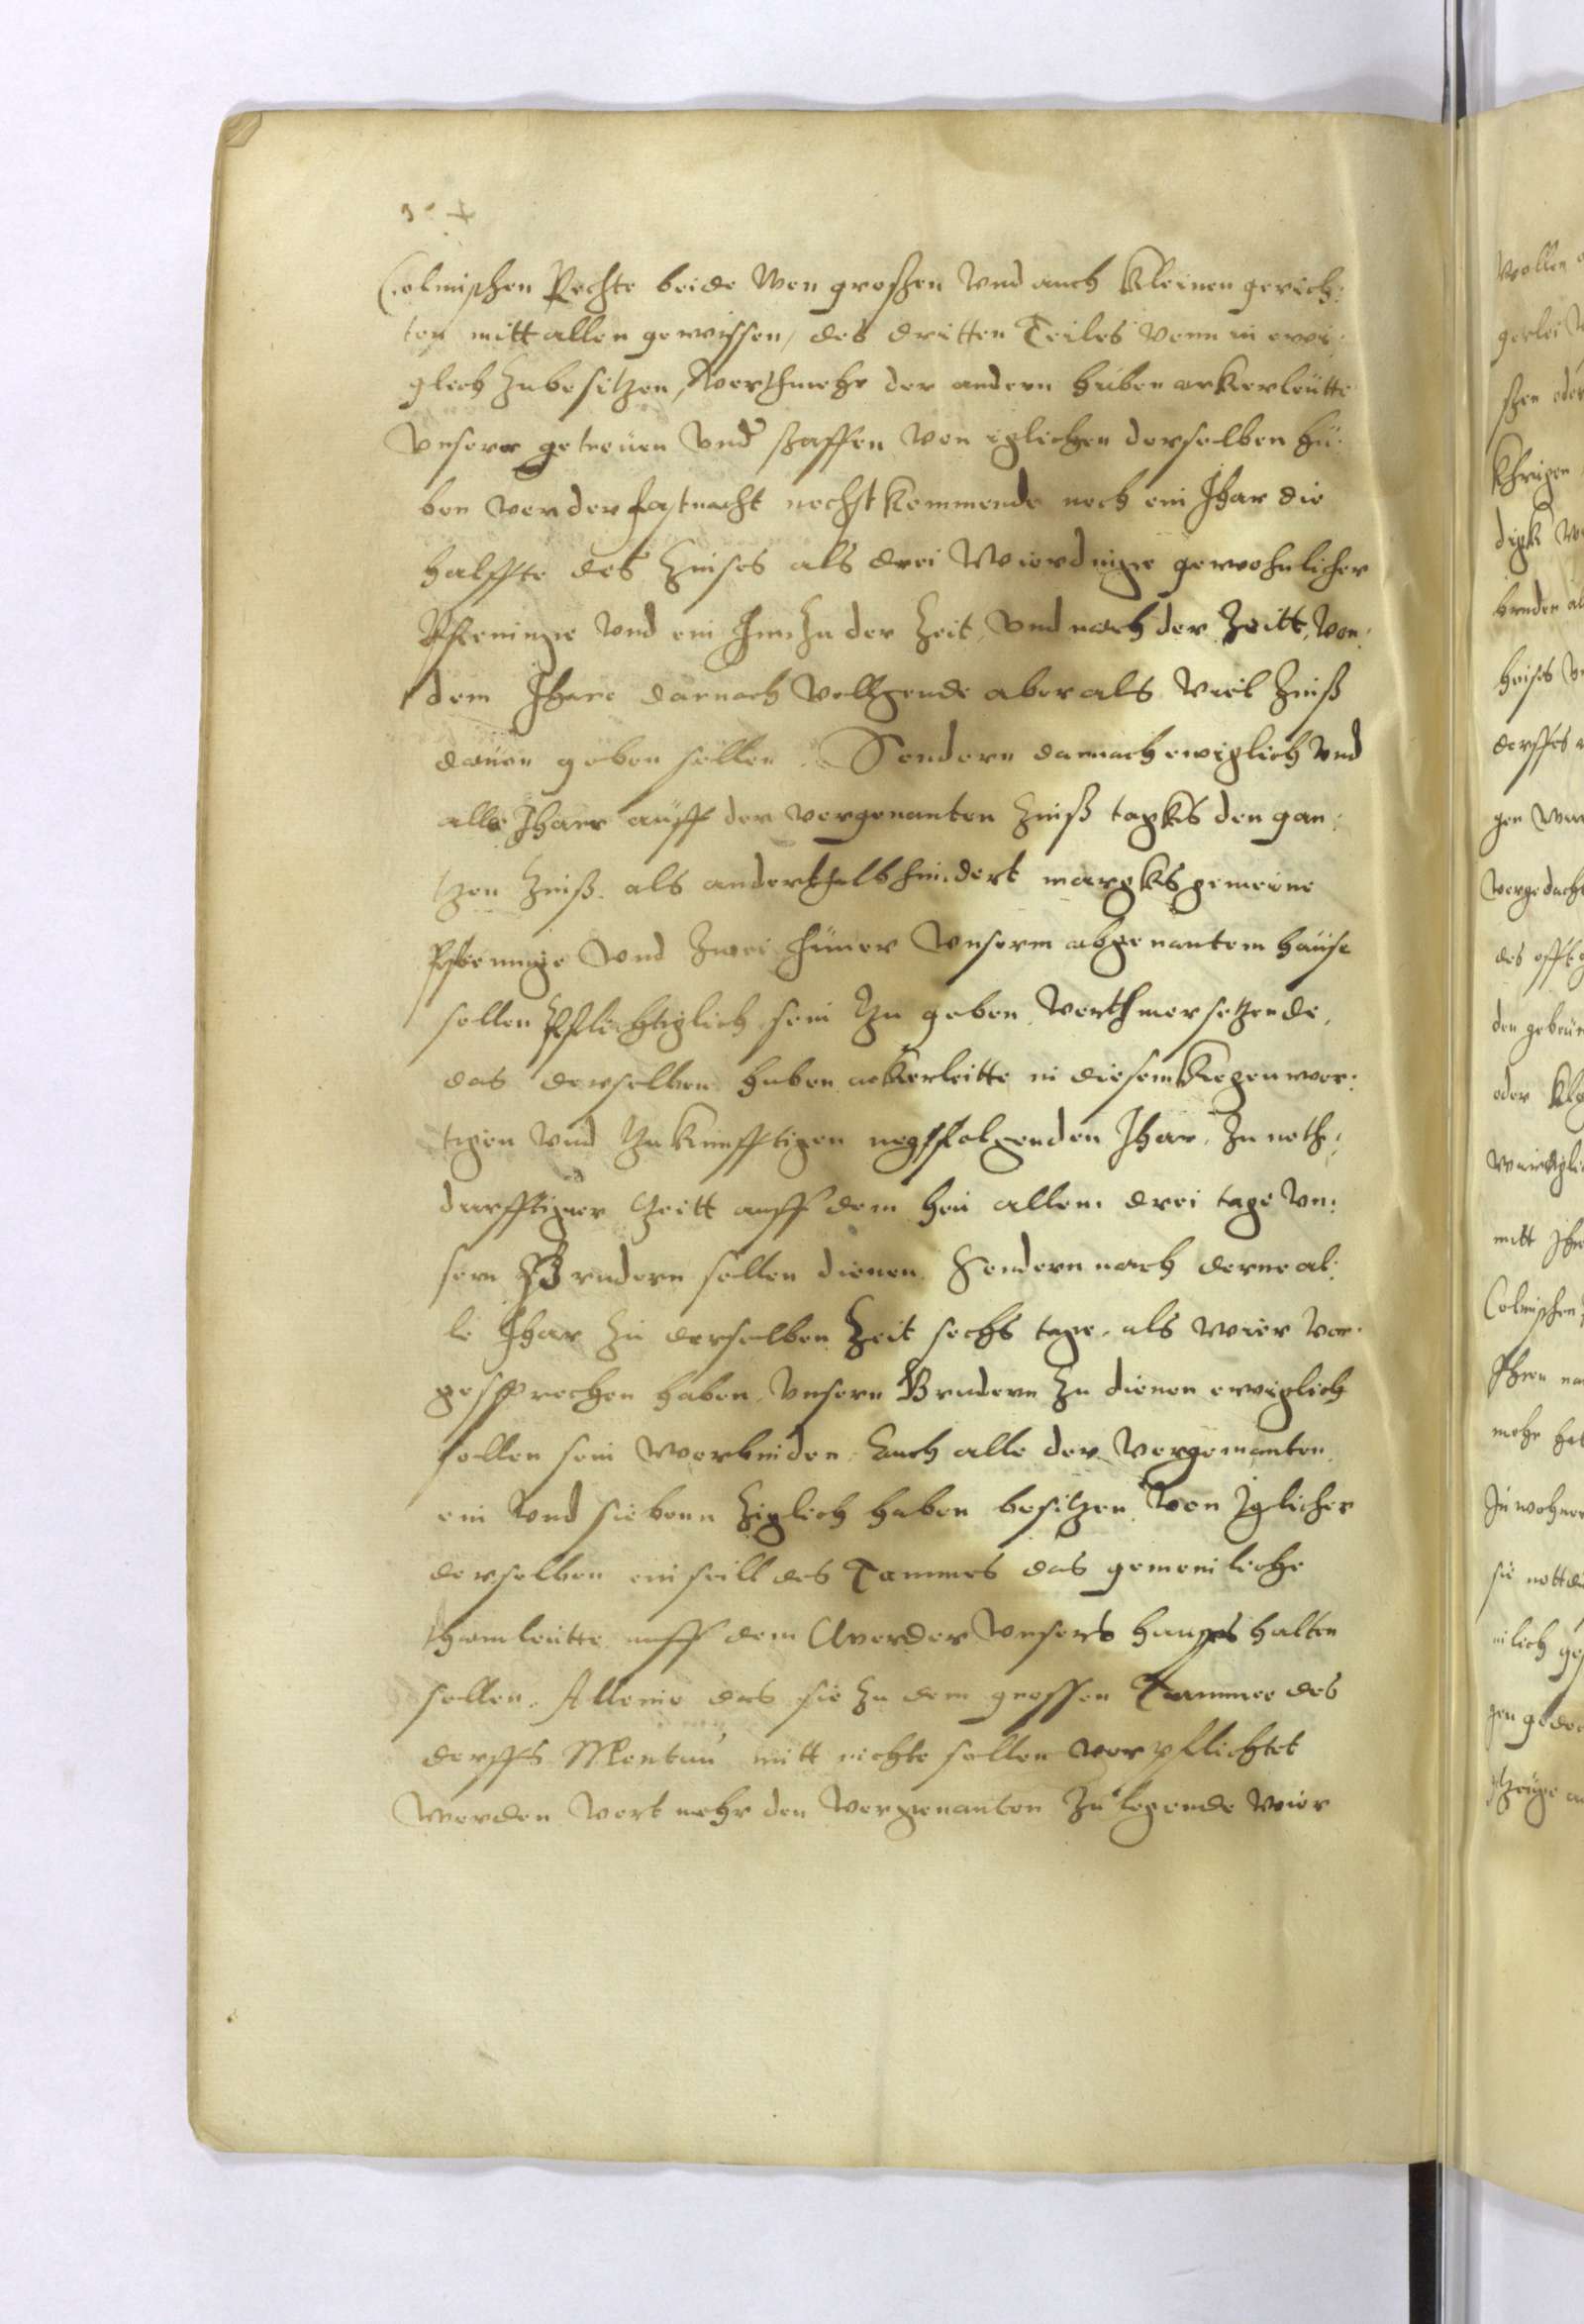 Colmischen Rechte beide von großen vnd auch Kleinen gerich:
ten mitt allen gewissen, des dritten Teiles vonn in ewi:
glich zubesitzen, Verthmehr der andern huben ackerleutte
vnsere getreuen vnd von iglichen derselben hu:
ben von der fastnacht nechst kommende noch ein Jhar die
halffte des Zinses als drei Vierdunge gewohnlicher
Pfenninge vnd ein hun zu der Zeit, vnd nach der Zeitt, von
dem Jhare darnach vollgende aber als viel Zinß
dauon geben sollen. Sondern darnach ewiglich vnd
alle Jhare auff der vorgenanten Zinß tagks den gan:
tzen Zinß als anderthalbhundert margks gemeine
Pfenninge vnd zwei hüner vnserm abgenantem hause
sollen Pflichtiglich sein zu geben, Verthmer setzende,
das derselben huben ackerleitte in diesem kegenwer:
tigen vnd zukunfftigen negstfolgenden Jhar, zu noth:
durfftiger Zeitt auff dem heu allein drei tage vn:
sern Brudern sollen dienen. Sondern nach deme al:
le Jhar zu derselben Zeit sechs tage, als wier vor
gesprochen haben, vnsern Brudern zu dienen ewiglich
sollen sein verbunden. Auch alle der vorgenanten
ein vnd siebenzig huben besitzer von Iglicher
derselben ein seill des Tammes das gemeinliche
thamleutte auff dem Werder vnsers hauses halten
sollen. Alleine das sie zu dem grossen Tamme des
dorffs Montau mitt nichte sollen verpflichtet
werden Vort mehr den vorgenanten zulegende wier